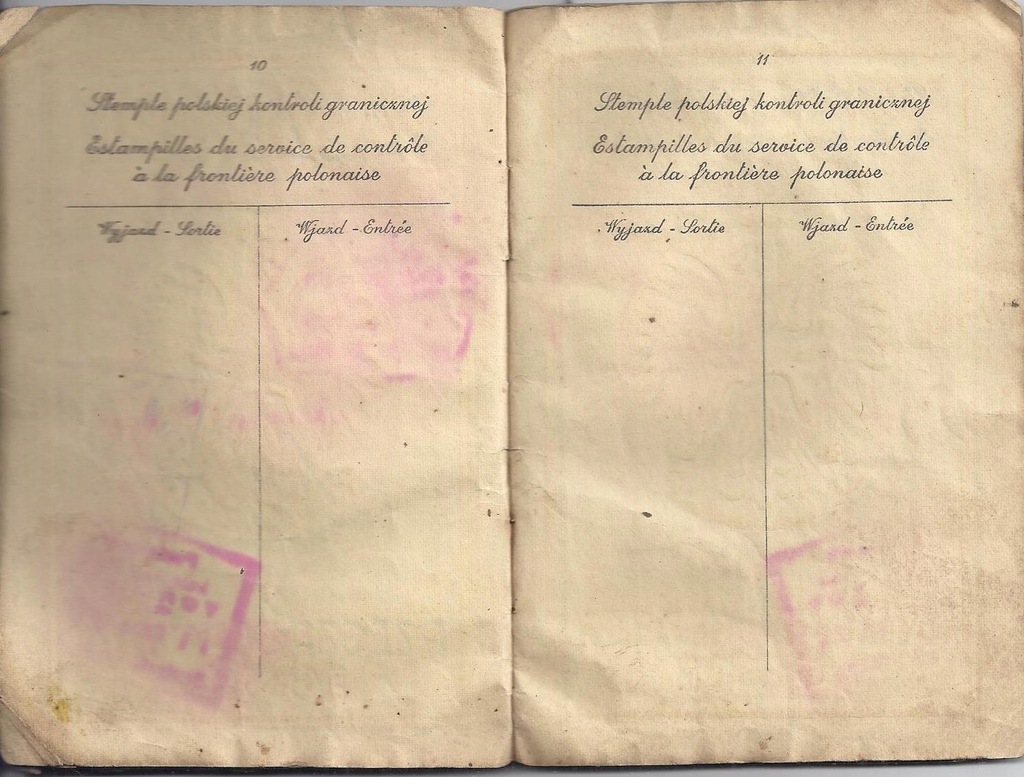 10
Stemple polskiej kontroli granicznej
Estampilles du service de contrôle
à la frontière polonaise
Wyjazd - Sortie
Wjazd - Entrée
11
Stemple polskiej kontroli granicznej
Estampilles du service de contrôle
à la frontière polonaise
Wyjazd - Sortie
Wjazd - Entrée